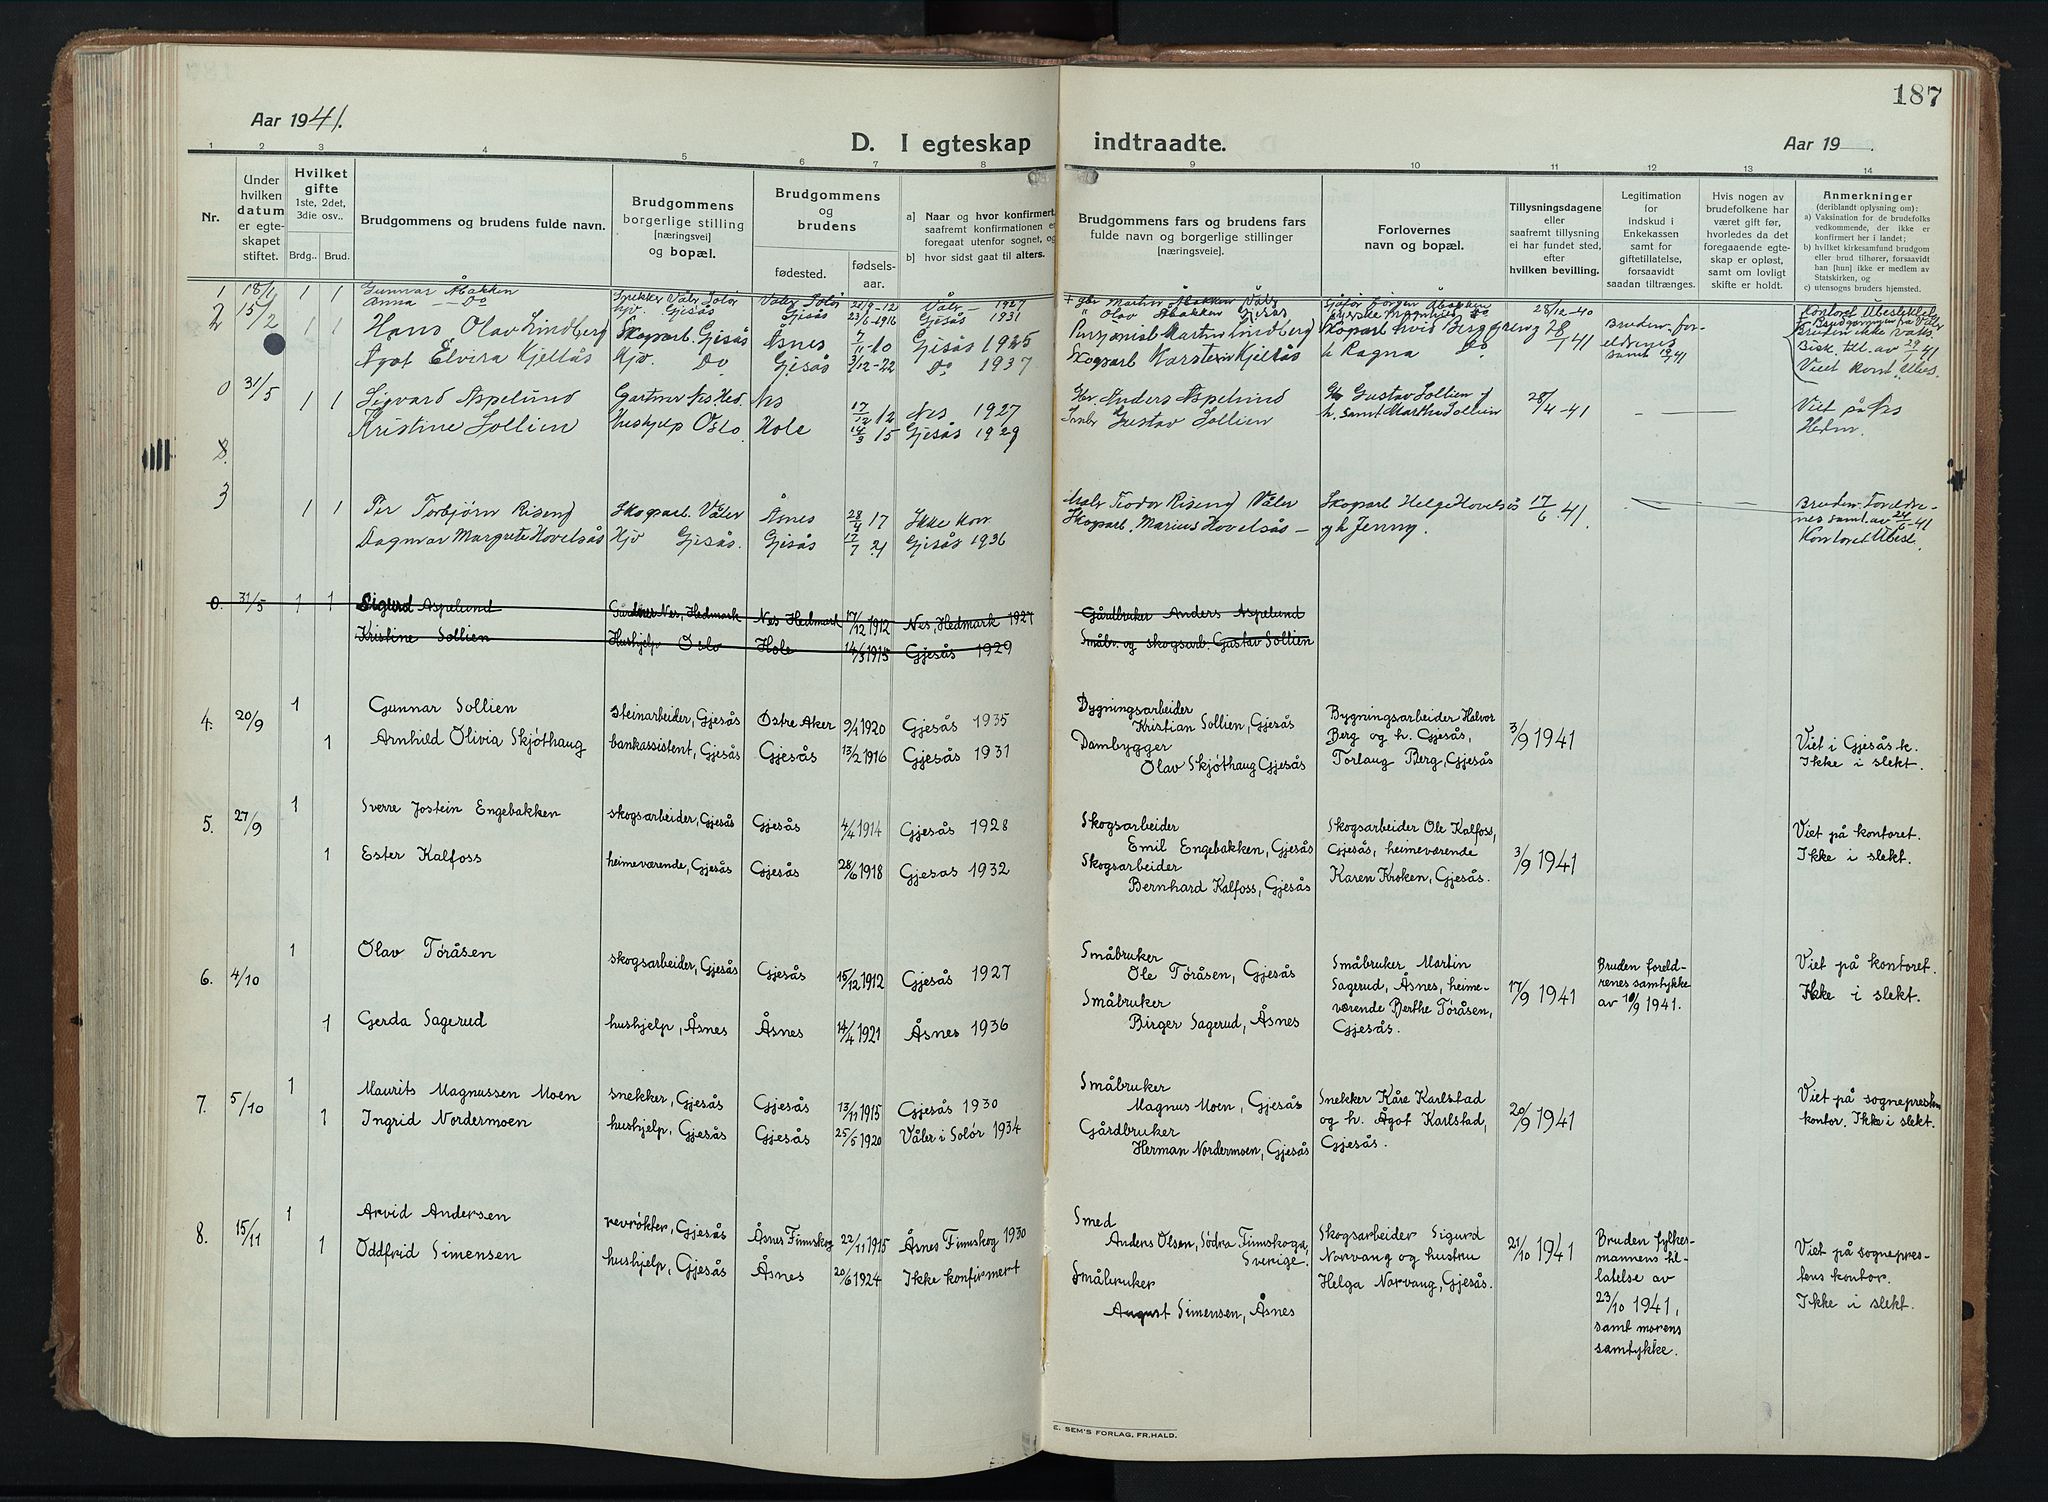 187
Aar 1941.
D. I egteskap indtraadte.
Aar 19
1 2 3 4 5 6 7 8 9 10 11 12 13 14
Nr.
Under hvilken datum er egteskapet stiftet.
Hvilket gifte
1ste, 2det, 3die osv..
Brdg.. Brud.
Brudgommens og brudens fulde navn.
Brudgommens borgerlige stilling [næringsvei] og bopæl.
Brudgommens og brudens
fødested.
fødsels-aar.
a) Naar og hvor konfirmert, saafremt konfirmationen er foregaat utenfor sognet, og
b) hvor sidst gaat til alters.
Brudgommens fars og brudens fars fulde navn og borgerlige stillinger [næringsveie].
Forlovernes navn og bopæl.
Tillysningsdagene eller saafremt tillysning ei har fundet sted, efter hvilken bevilling.
Legitimation for indskud i Enkekassen samt for giftetillatelse, forsaavidt saadan tiltrænges.
Hvis nogen av brudefolkene har været gift før, hvorledes da det foregaaende egteskap er opløst, samt om lovligt skifte er holdt.
Anmerkninger (deriblandt oplysning om):
a) Vaksination for de brudefolks vedkommende, der ikke er konfirmert her i landet;
b) hvilket kirkesamfund brudgom eller brud tilhører, forsaavidt han [hun] ikke er medlem av Statskirken, og
c) utensogns brudens hjemsted.
1 18/1 1 1 Gunnar Åbakken Snekker Våler Solør Våler Solør Våler 1927 Martin Åbakken Våler 28/12-40
Anna Do Hjv. Gjesås Gjesås 23/6-1916 Gjesås 1931 Olav Åbakken Gjesås
2 15/2 1 1 Hans Olav Lindberg Skogsarb. Gjesås Åsnes 7/11-10 Gjesås 1925 Martin Lindberg 28/1 41 Bruden forældrenes samt.
Agot Elvira Kjeltås Hjv. Do Gjesås 3/12-22 Do 1937 Skogsarb. Karsten Kjeltås h. Ragna Do
0 31/5 1 1 Sigvard Aspelund Gartner Nes Hed. Nes 17/12 12 Nes 1927 Gbr Anders Aspelund Gustav Sollien 28/4-41 Viet på Nes
Kristine Sollien Hushjelp Oslo Hole 14/3 15 Gjesås 1929 Gustav Sollien h. samt Marthe Sollien Hedm.
8.
3 1 1 Per Torbjørn Risend Skogarb. Våler Åsnes 28/4 17 Ikke kon Teodor Risend Våler Skogarb Helge Hovelsås 17/6 41.
Dagmar Margrete Hovelsås Hjv Gjesås. Gjesås 17/7 21 Gjesås 1936 Skogarb. Marius Hovelsås gh Jenny.
0. 31/5 1 1 Sigurd Aspelund Gårdbruker Nes, Hedmark Nes Hedmark 17/12 1912 Nes, Hedmark 1927 Gårdbruker Anders Aspelund
Kristine Sollien Hushjelp Oslo Hole 14/3 1915 Gjesås 1929 Småbr. og skogsarb. Gustav Sollien
4. 20/9 1 Gunnar Sollien steinarbeider, Gjesås Østre Aker 9/1 1920 Gjesås 1935 Bygningsarbeider Kristian Sollien, Gjesås Bygningsarbeider Halvor Berg og h. Gjesås, Torlaug Berg, Gjesås 3/9 1941 Viet i Gjesås k. Ikke i slekt.
1 Arnhild Olivia Skjøthaug bankassistent, Gjesås Gjesås 13/2 1916 Gjesås 1931 Dambygger Olav Skjøthaug Gjesås
5. 27/9 1 Sverre Jostein Engebakken skogsarbeider, Gjesås Gjesås 4/4 1914 Gjesås 1928 Skogsarbeider Emil Engebakken, Gjesås Skogsarbeider Ole Kalfoss, Gjesås, heimeværende Karen Kroken, Gjesås. 3/9 1941 Viet på kontoret. Ikke i slekt.
1 Ester Kalfoss heimeværende, Gjesås Gjesås 28/6 1918 Gjesas 1932 Skogsarbeider Bernhard Kalfoss, Gjesås
6. 4/10 1 Olav Toråsen skogsarbeider, Gjesås Gjesås 15/12 1912 Gjesås 1927 Småbruker Ole Toråsen, Gjesås Småbruker Martin Sagerud, Åsnes, heimeværende Berthe Toråsen, Gjesås. 17/9 1941 Bruden foreldrenes samtykke av 10/9 1941. Viet på kontoret. Ikke i slekt.
1 Gerda Sagerud hushjelp, Åsnes Åsnes 14/4 1921 Åsnes 1936 Småbruker Birger Sagerud, Åsnes
7. 5/10 1 Maurits Magnussen Moen snekker, Gjesås Gjesås 13/11 1915 Gjesås 1930 Småbruker Magnus Moen, Gjesås Snekker Kåre Karlstad og h. Ågot Karlstad, Gjesås. 20/9 1941 Viet på sogneprestens kontor. Ikke i slekt.
1 Ingrid Nordermoen hushjelp, Gjesås Gjesås 25/5 1920 Våler i Solør 1934 Gårdbruker Herman Nordermoen, Gjesås
8. 15/11 1 Arvid Andersen revrøkter, Gjesås Åsnes Finnskog 22/11 1915 Åsnes Finnskog 1930 Smed Anders Olsen, Södra Finnskoga, Sverige. Skogsarbeider Sigurd Norvang og hustru Helga Norvang, Gjesås. 21/10 1941 Bruden fylkesmannens tillatelse av 23/10 1941, samt morens samtykke. Viet på sogneprestens kontor. Ikke i slekt.
1 Oddfrid Simensen hushjelp, Gjesås Åsnes 20/6 1924 Ikke konfirmert Småbruker August Simensen, Åsnes
E. SEM'S FORLAG, FR.HALD.